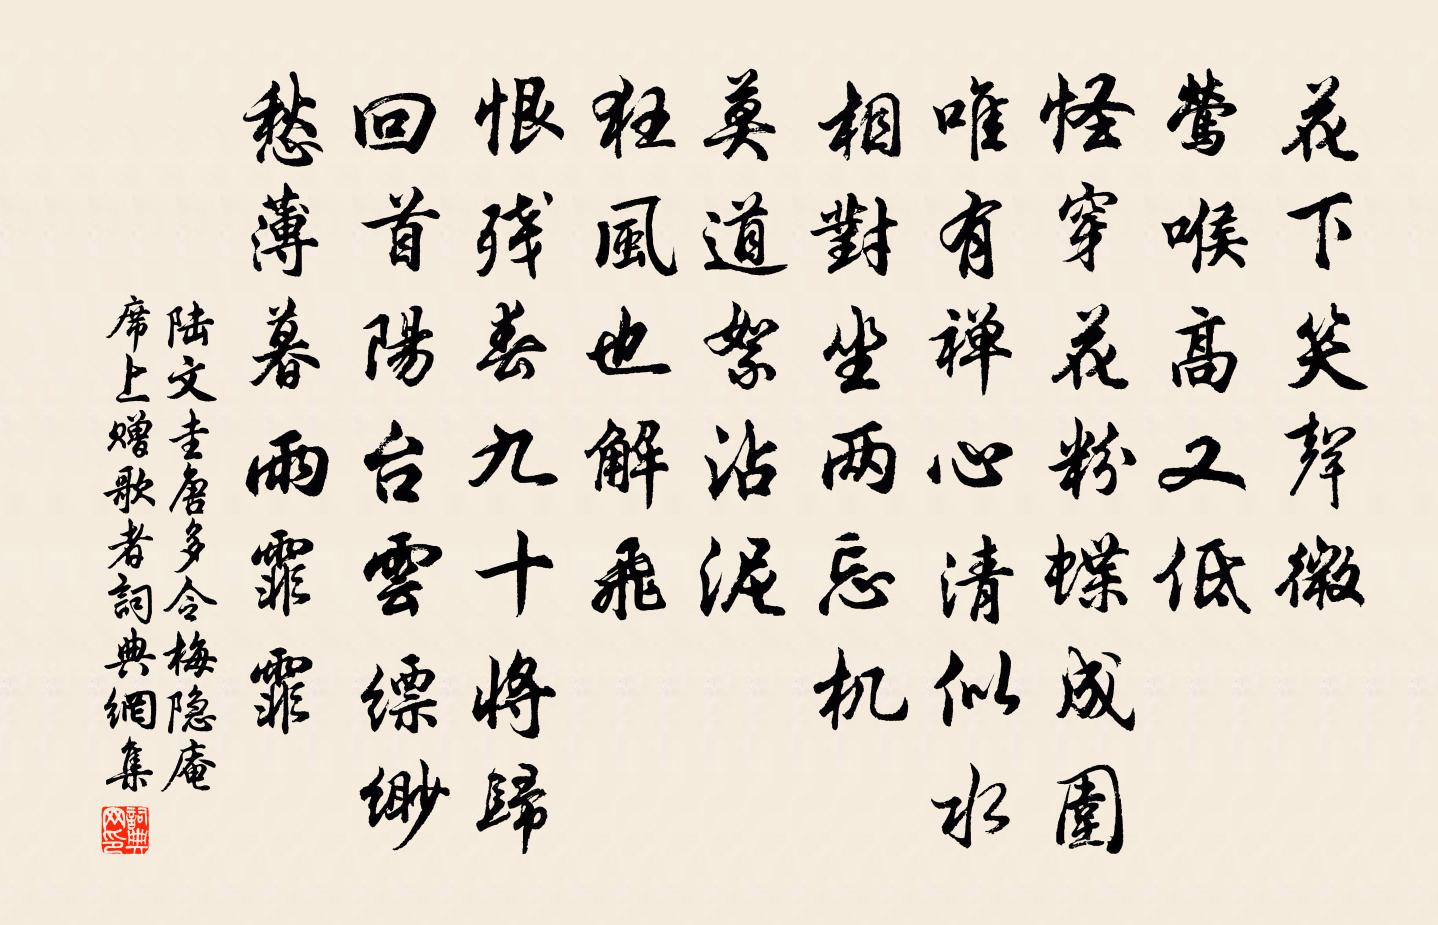 花下笑聲微
鶯喉高又低
怪穿花粉蝶成圍
唯有禅心清似水
相對坐两忘机
莫道絮沾泥
狂風也解飛
恨残春九十將歸
回首陽台雲縹緲
愁薄暮雨霏霏
陆文圭唐多令梅隐庵
席上赠歌者詞典網集
詞典
网印